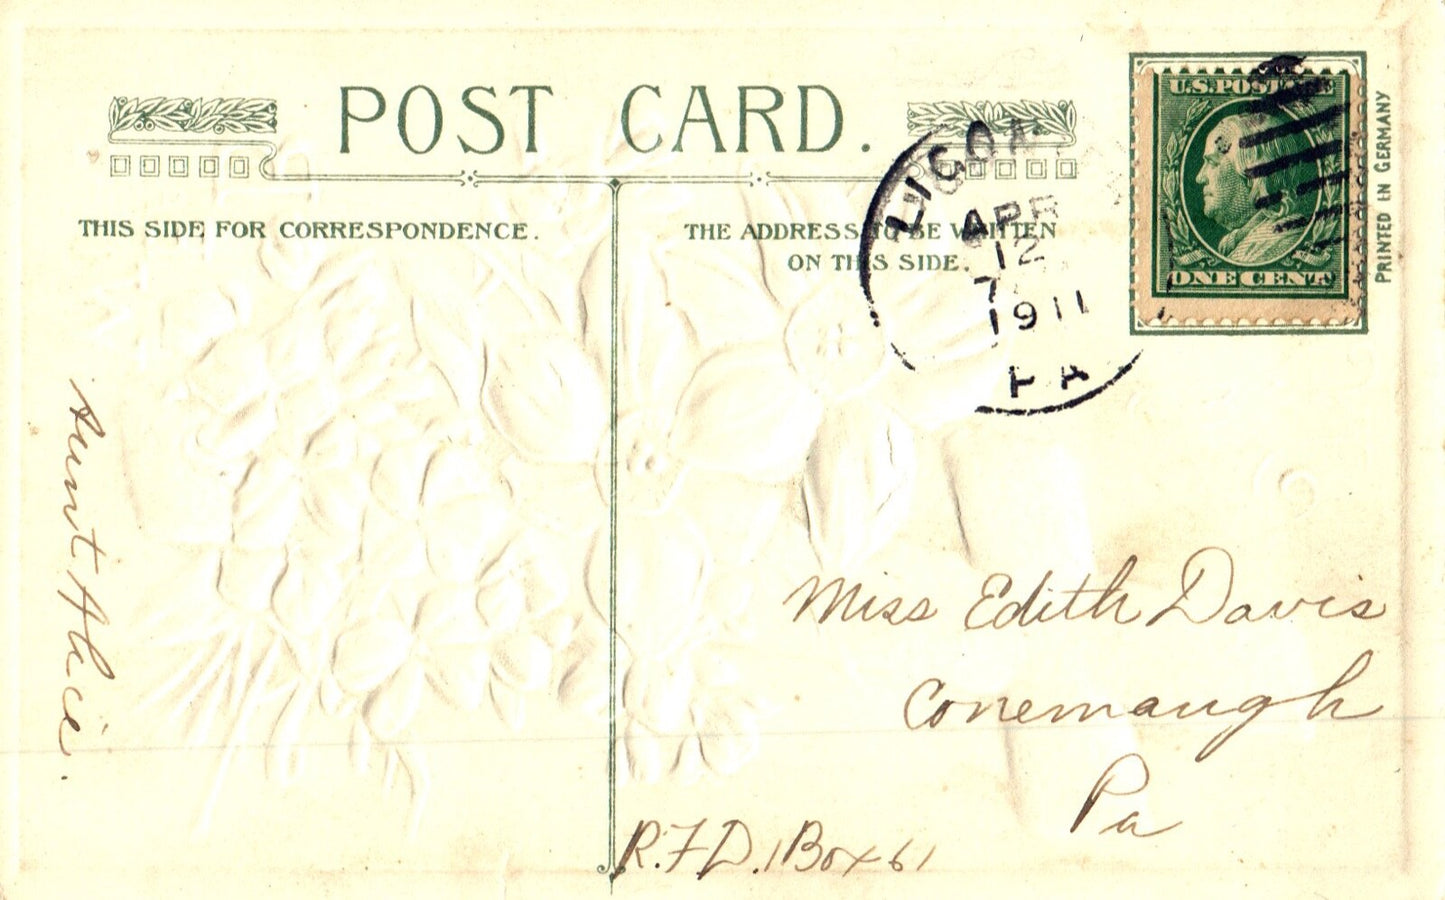 POST CARD.
THIS SIDE FOR CORRESPONDENCE.
THE ADDRESS TO BE WRITTEN
ON THIS SIDE.
APR
12
7
1911
PA
U.S. POSTAGE
ONE CENT
PRINTED IN GERMANY
Aunt Alice.
Miss Edith Davis
Conemaugh
Pa
R.F.D. 1 Box 61